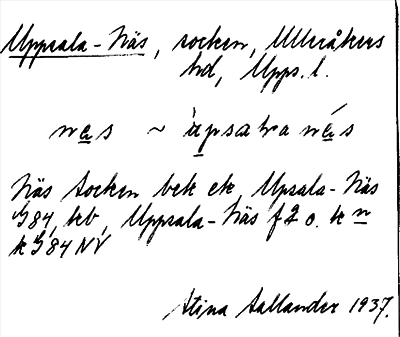 Uppsala-Näs, socken, Ulleråkers
hd, Upps. l.
nęs ~ ùpsalra nés
Näs socken bek ek, Upsala-Näs
G84, kb, Uppsala-Näs f20. k n
k G84 NV
Stina Sallander 1937.